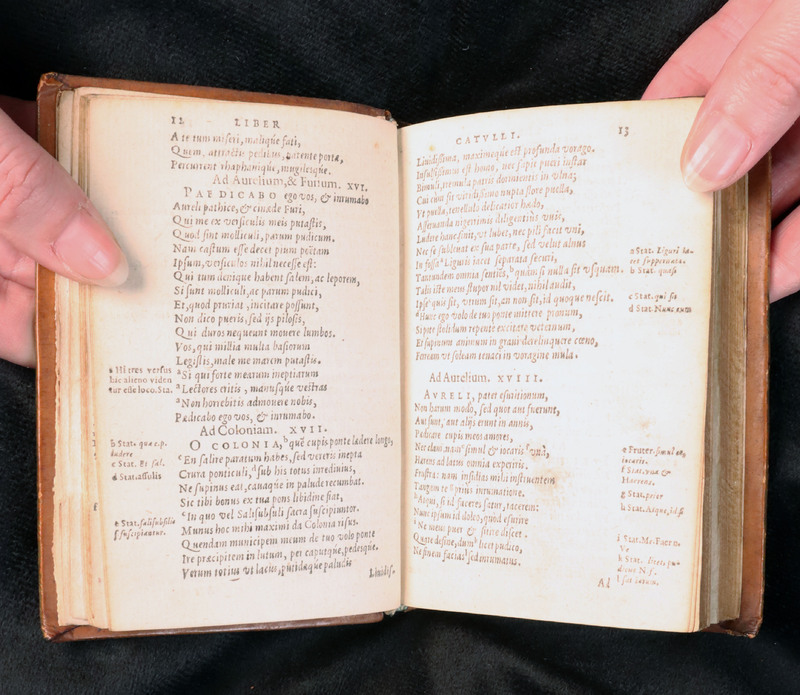 12 LIBER
A te tum miseri, malique fati,
Quem, attractis pedibus, patente porta,
Percurrent rhaphanique, mugilesque.
Ad Aurelium, & Furium. XVI.
PAEDICABO ego vos, & inrumabo
Aureli pathice, & cinæde Furi,
Qui me ex versiculis meis putastis,
Quod sint molliculi, parum pudicum.
Nam castum esse decet pium poëtam
Ipsum, versiculos nihil necesse est:
Qui tum denique habent salem, ac leporem,
Si sunt molliculi, ac parum pudici,
Et, quod pruriat, incitare possunt,
Non dico pueris, sed ijs pilosis,
Qui duros nequeunt movere lumbos.
Vos, qui millia multa basiorum
Legistis, male me marem putastis.
a Si qui forte mearum ineptiarum
a Lectores eritis, manusque vestras
a Non horrebitis admovere nobis,
Pædicabo ego vos, & inrumabo.
Ad Coloniam. XVII.
O COLONIA, b quæ cupis ponte ludere longo,
c En salire paratum habes, sed vereris inepta
Crura ponticuli, d sub his totus inredivius,
Ne supinus eat, cavaque in palude recumbat.
Sic tibi bonus ex tua pons libidine fiat,
e In quo vel Salisubsuli sacra suscipiuntor.
Munus hoc mihi maximi da Colonia risus.
Quendam municipem meum de tuo volo ponte
Ire præcipitem in lutum, per caputque, pedesque.
Verum totius ut lacus, putidæque paludis
Lividis-
a Hi tres versus
hic alieno viden
tur esse loco. Sta.
b Stat. quæ c. p.
ludere
c Stat. Et sal.
d Stat. assulis
e Stat. salisubsilis
f suscipiantur.
CATVLLI. 13
Lividissima, maximeque est profunda vorago.
Insulsissimus est homo, nec sapit pueri instar
Bimuli, tremula patris dormientis in ulna;
Cui cum sit viridissimo nupta flore puella,
Et puella, tenellulo delicatior hædo,
Asservanda nigerrimis diligentius vuis,
Ludere hanc sinit, vt lubet, nec pili facit vni,
Nec se subleuat ex sua parte, sed velut alnus
In fossa a Liguri iacet separata securi,
Tantundem omnia sentiens, b quàm si nulla sit vsquam.
Talis iste meus stupor nil videt, nihil audit,
Ipse c quis sit, vtrum sit, an non sit, id quoque nescit.
d Hunc ego volo de tuo ponte mittere pronum,
Si pote stolidum repente excitare veternum,
Et supinum animum in gravi derelinquere cœno,
Ferream ut soleam tenaci in voragine mula.
Ad Aurelium. XVIII.
AVRELI, pater esuritionum,
Non harum modo, sed quot aut fuerunt,
Aut sunt, aut alijs erunt in annis,
Pedicare cupis meos amores,
Nec clam, nam e simul & iocaris f vnà,
Hærens ad latus omnia experiris.
Frustra: nam insidias mihi instruentem
Tangam te g prius inrumatione.
h Atqui, si id faceres satur, tacerem:
Nunc ipsum id doleo, quod esurire
i Ne meus puer & sitire discet.
Quare desine, dum k licet pudico,
Ne finem facias l sed inrumatus.
Al
a Stat. Liguri ia-
cet suppernata.
b Stat. quasi
c Stat. qui sit
d Stat. Nunc eum
e Fruter. simul es,
iocaris.
f Stat. vna &
Hærens.
g Stat. prior
h Stat. Atque, id si
i Stat. Me. Puer.
Ve
k Stat. licet, pu-
dicus N. f.
l sit